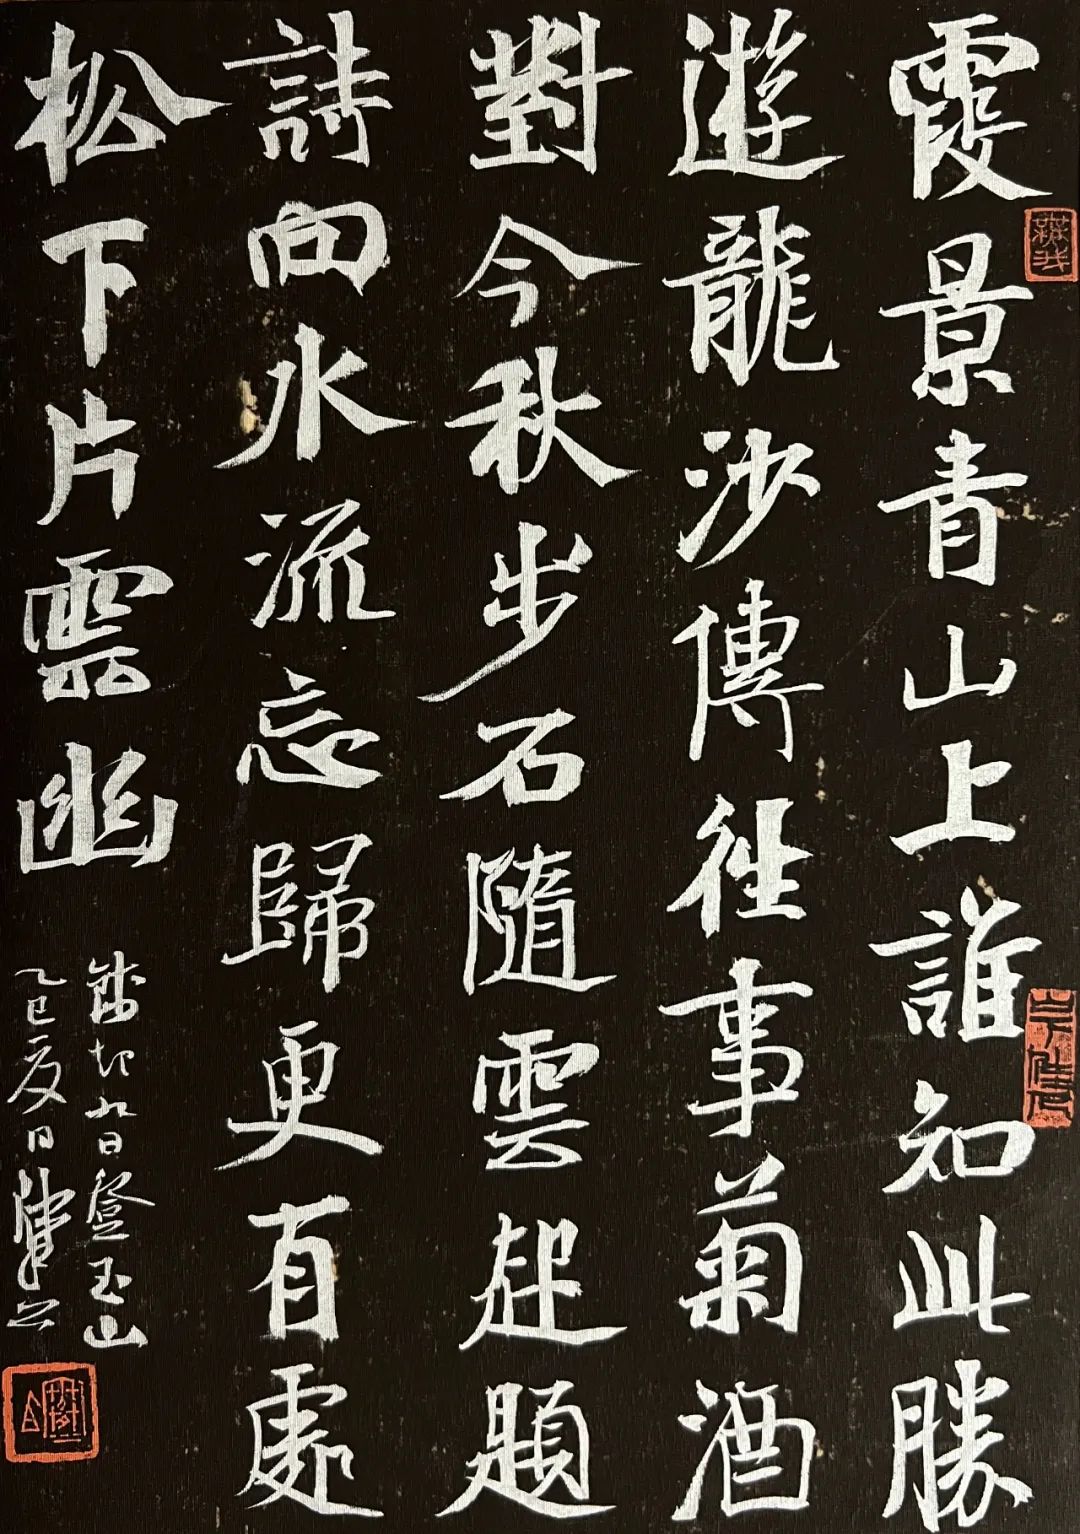 霞景青山上誰知此勝
遊龍沙傳往事菊酒
對今秋步石隨雲起題
詩向水流忘歸更有處
松下片雲幽
錢起九日登玉山
乙巳夏日